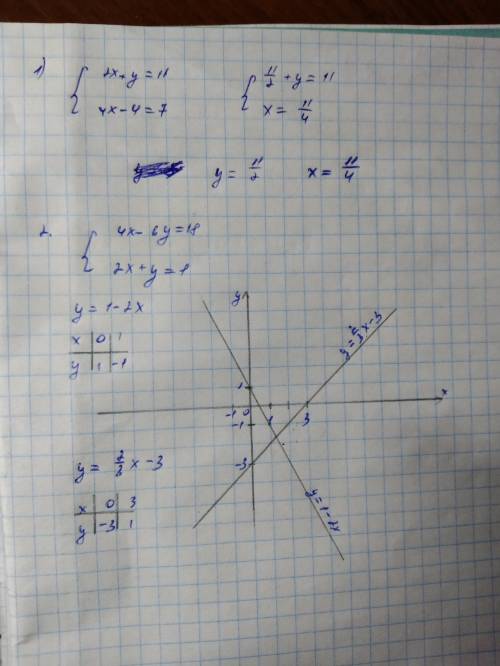 1) { 2x+y=11
4x-4=7
{ 11/2 +y=11
x= 11/4
y= 11/2 x= 11/4
2. { 4x-6y=18
2x+y=1
y=1-2x
x 0 1
y 1 -1
y= 2/3 x-3
x 0 3
y -3 1
y
y= 2/3 x-3
x
1
-1 0 1 3
-1
-3
y=1-2x